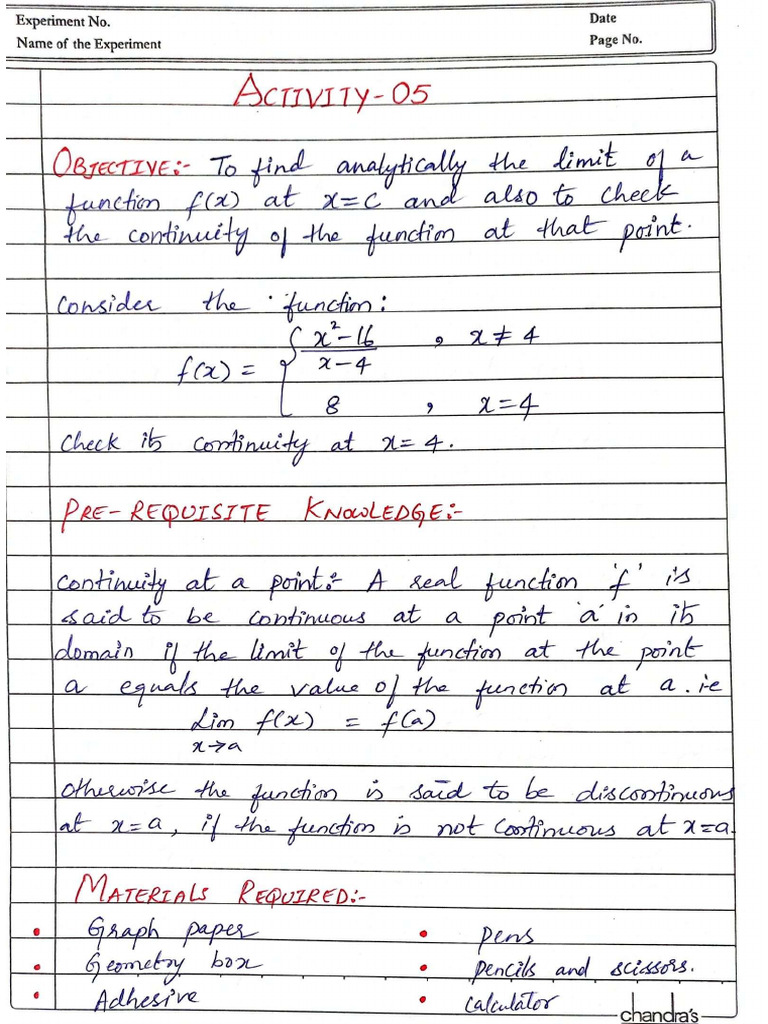 Experiment No.
Date
Name of the Experiment
Page No.
ACTIVITY-05
OBJECTIVE:- To find analytically the limit of a
function f(x) at x=c and also to check
the continuity of the function at that point.
Consider the function:
f(x) = { x²-16 / x-4 , x≠4
8 , x=4
Check its continuity at x=4.
PRE-REQUISITE KNOWLEDGE:-
Continuity at a point:- A real function 'f' is
said to be continuous at a point 'a' in its
domain if the limit of the function at the point
a equals the value of the function at a. ie
Lim f(x) = f(a)
x→a
Otherwise the function is said to be discontinuous
at x=a, if the function is not continuous at x=a.
MATERIALS REQUIRED:-
• Graph paper
• Pens
• Geometry box
• pencils and scissors.
• Adhesive
• Calculator
chandra's